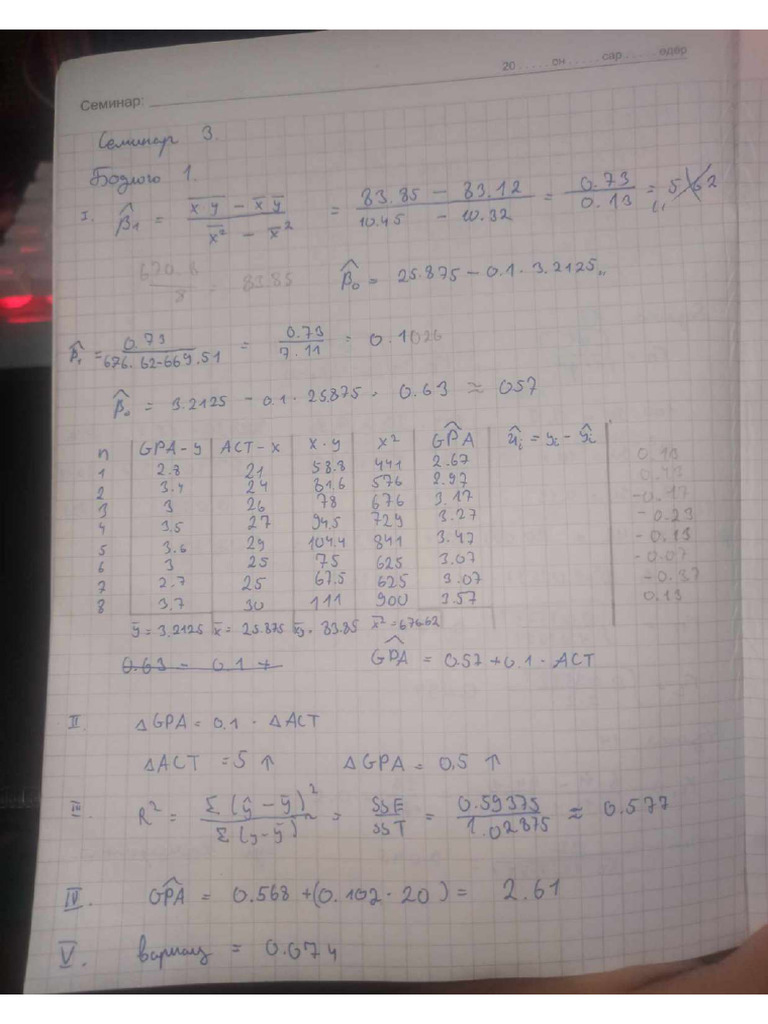 20.....он.....сар.....өдөр
Семинар:
Семинар 3.
Бодлого 1.
I. β̂₁ = (x̅·y̅ - x̅ y̅)/(x̅² - x̅²) = (83.85 - 83.12)/(10.45 - 10.32) = 0.73/0.13 = 5.62
670.8/8 = 83.85 β̂₀ = 25.875 - 0.1 · 3.2125
β̂₁ = 0.73/(676.62-669.51) = 0.73/7.11 = 0.1026
β̂₀ = 3.2125 - 0.1 · 25.875 = 0.63 ≈ 057
n GPA-y ACT-x x·y x² GPÂ ûᵢ = yᵢ - ŷᵢ
1 2.8 21 58.8 441 2.67 0.13
2 3.4 24 81.6 576 2.97
3 3 26 78 676 3.17 -0.17
4 3.5 27 94.5 729 3.27 -0.23
5 3.6 29 104.4 841 3.47 -0.13
6 3 25 75 625 3.07 -0.07
7 2.7 25 67.5 625 3.07 -0.37
8 3.7 30 111 900 3.57 0.13
y̅ = 3.2125 x̅ = 25.875 x̅y̅ = 83.85 x̅² = 676.62
0.63 - 0.1 + GPÂ = 0.57 + 0.1 · ACT
II. ΔGPA = 0.1 · ΔACT
ΔACT = 5 ↑ ΔGPA = 0.5 ↑
III. R² = Σ(ŷ - y̅)²/Σ(y - y̅)² = SSE/SST = 0.59375/1.02875 ≈ 0.577
IV. GPÂ = 0.568 + (0.102 · 20) = 2.61
V. вариац = 0.074